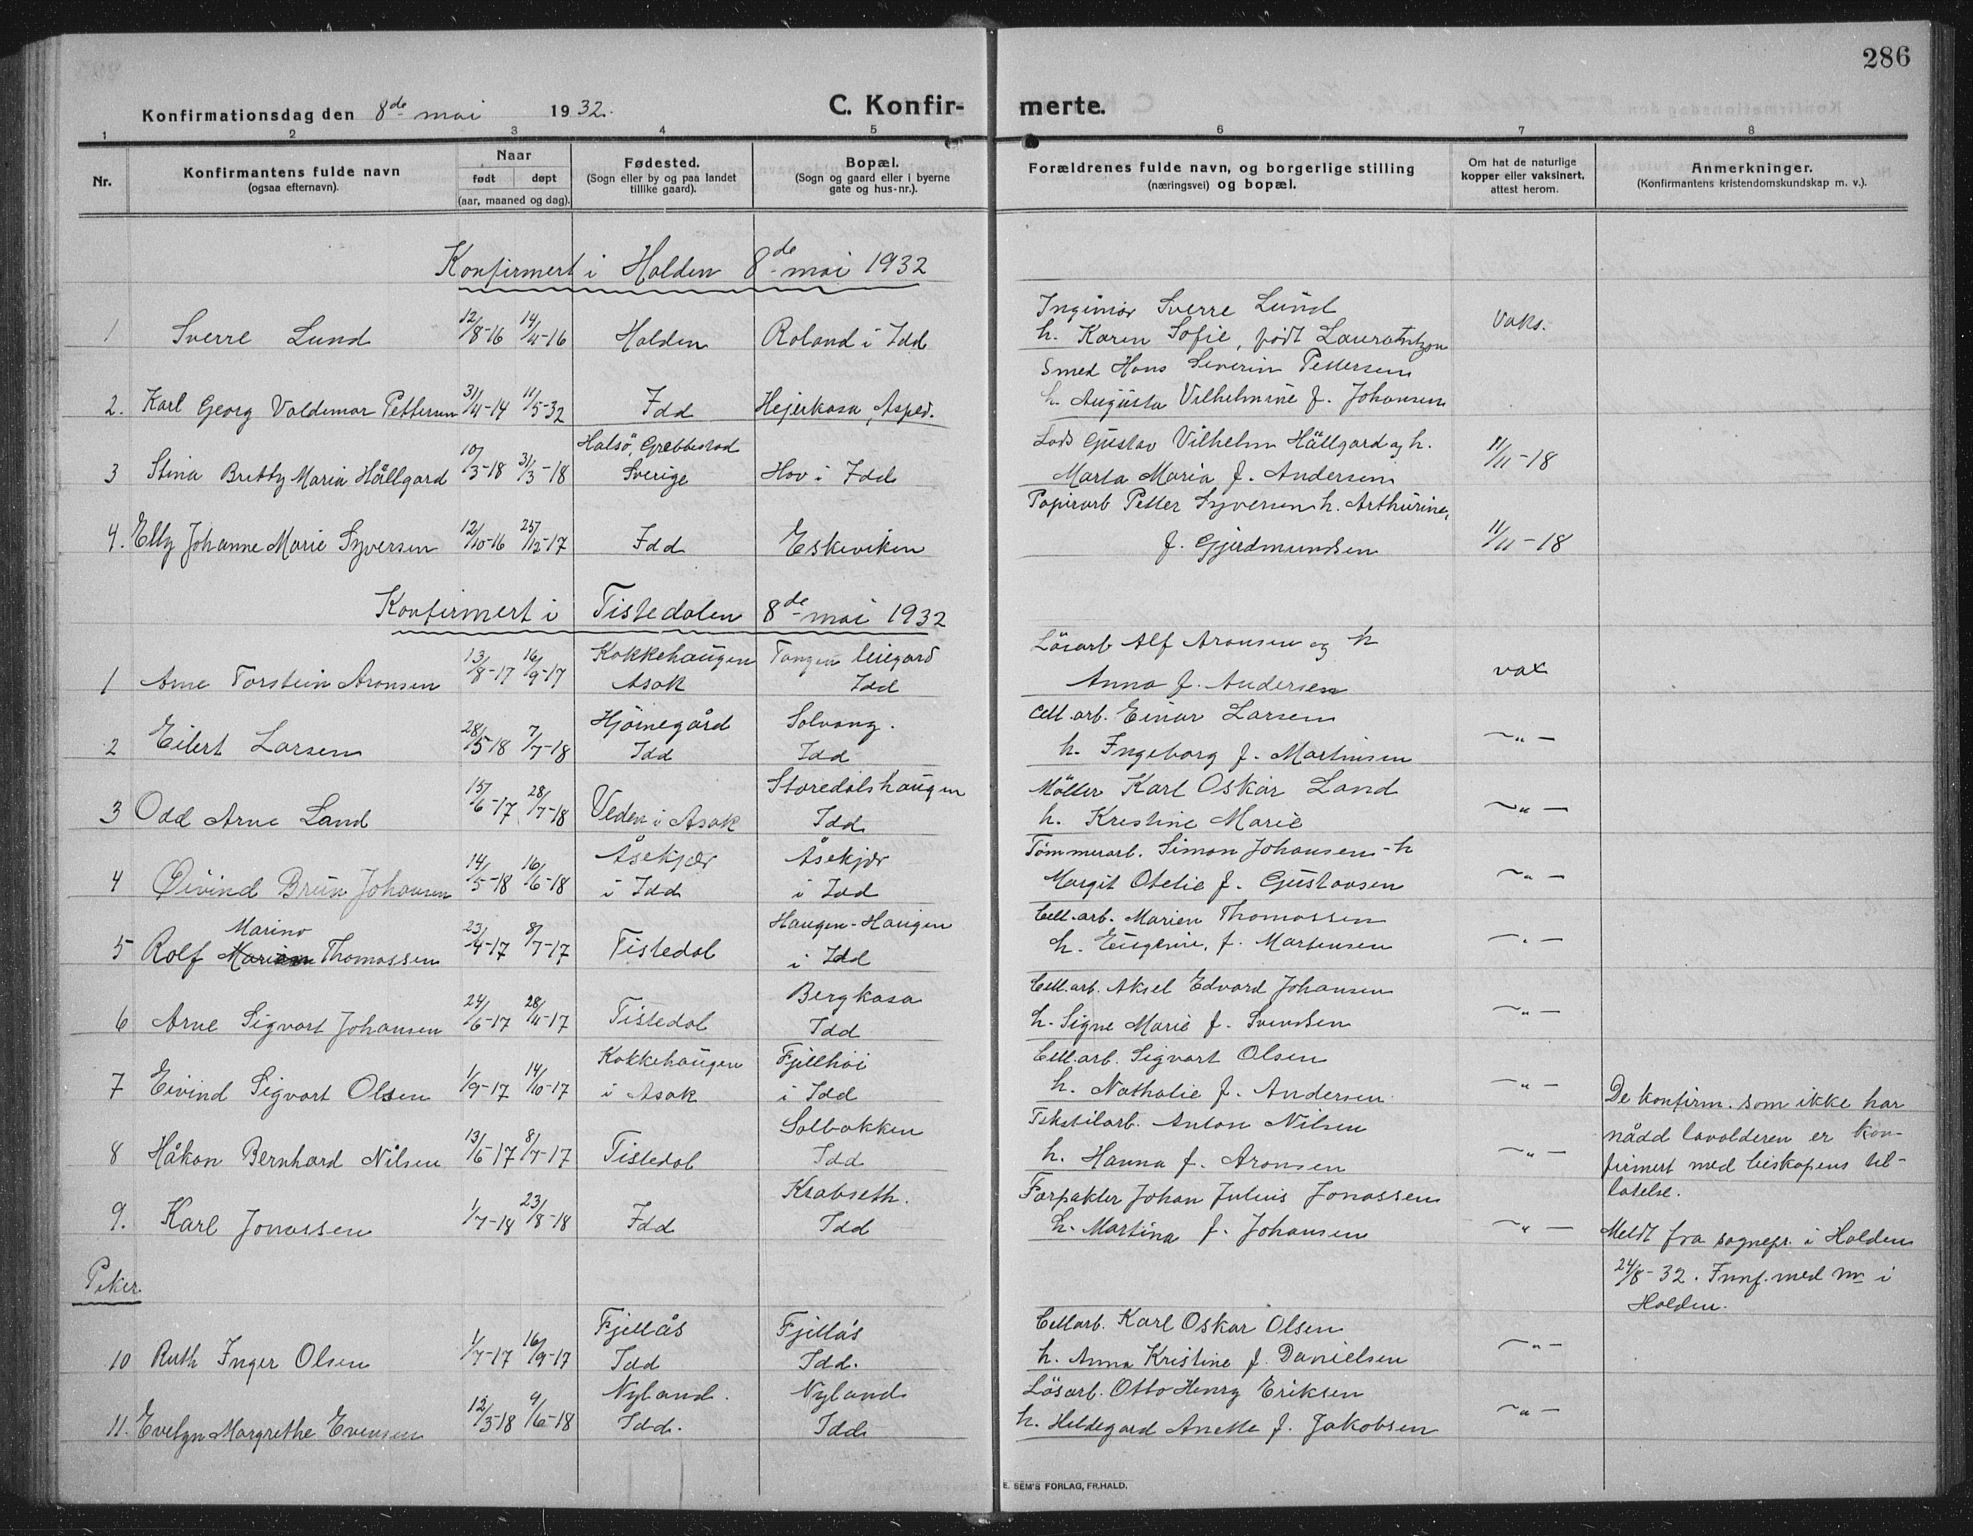 286
Konfirmationsdag den 8de mai 1932. C. Konfirmerte.
1 2 3 4 5 6 7 8
Nr. Konfirmantens fulde navn (ogsaa efternavn). Naar født døpt (aar, maaned og dag). Fødested. (Sogn eller by og paa landet tillike gaard). Bopæl. (Sogn og gaard eller i byerne gate og hus-nr.). Forældrenes fulde navn, og borgerlige stilling (næringsvei) og bopæl. Om hat de naturlige kopper eller vaksinert, attest herom. Anmerkninger. (Konfirmantens kristendomskundskap m. v.).
Konfirmert i Halden 8de mai 1932
1 Sverre Lund 12/8-16 14/4-16 Halden Roland i Idd Ingimar Sverre Lund
h. Karen Sofie, født Vaks.
2. Karl Georg Valdemar Pettersen 31/4-14 11/5-32 Idd Asped. Smed Hans Severin Pettersen
h. Augusta Vilhelmine f. Johansen
3 Stina Maria Hällgard 10/3-18 31/3-18 Halsö, Grebbestad Sverige Hov i Idd Gustav Vilhelm Hällgard og h.
Marta Maria f. Andersen 11/11-18
4. Elly Johanne Marie Syversen 12/10-16 25/12-17 Idd Eskeviken Papirarb Petter Syversen h. Arthurine,
f. Gjerdmundsen 11/11-18
Konfirmert i Tistedalen 8de mai 1932
1 Arne Torstein Aronsen 13/8-17 16/9-17 Kokkehaugen Asak Tangen leiegard Idd Løsarb Alf Aronsen og h
Anna f. Andersen vax
2 Eilert Larsen 28/5-18 7/7-18 Hjørnegård Idd Solvang. Idd Cell.arb. Einar Larsen
h. Ingeborg f. Martinsen -"-
3 Odd Arne Land 15/6-17 28/7-18 Veden i Asak Storedalshaugen Idd Møller Karl Oskar Land
h. Kristine Marie -"-
4 Øivind Brun Johansen 14/5-18 16/6-18 Åsekjær i Idd Åsekjær i Idd Tømmerarb. Simon Johansen - h
Margit Otelie f. Gustavsen -"-
5 Rolf Marino Thomassen 23/4-17 8/7-17 Tistedal Haugen-Haugen i Idd Cell.arb. Marien Thomassen
h. Eugenie, f. Martensen -"-
6 Arne Sigvart Johansen 24/6-17 28/4-17 Tistedal Bergkasa Idd Cell.arb. Aksel Edvard Johansen
h. Signe Marie f. Svendsen -"-
7 Eivind Sigvart Olsen 1/9-17 14/10-17 Kokkehaugen i Asak Fjellhøi i Idd Cell.arb. Sigvart Olsen
h. Nathalie f. Andersen -"-
De konfirm. som ikke har
nådd lavalderen er kon-
firmert med biskopens til-
latelse.
8 Håkon Bernhard Nilsen 13/6-17 8/7-17 Tistedal Solbakken Idd Tekstilarb. Anton Nilsen
h. Hanna f. Aronsen -"-
9. Karl Jonassen 1/7-18 23/8-18 Idd Krabseth. Idd Forpakter Johan Julius Jonassen
h. Martina f. Johansen -"-
Meldt fra sognepr. i Halden
24/8-32. med nr i
Halden.
Piker.
10 Ruth Inger Olsen 1/7-17 16/9-17 Fjellås Idd Fjellås Idd. Cellarb. Karl Oskar Olsen
h. Anna Kristine f. Danielsen -"-
11. Evelyn Margrethe 12/3-18 9/6-18 Nyland. Idd. Nyland Idd Løsarb. Otto Henry Eriksen
h. Hildegard Anette f. Jakobsen -"-
E. SEM'S FORLAG, FR.HALD.